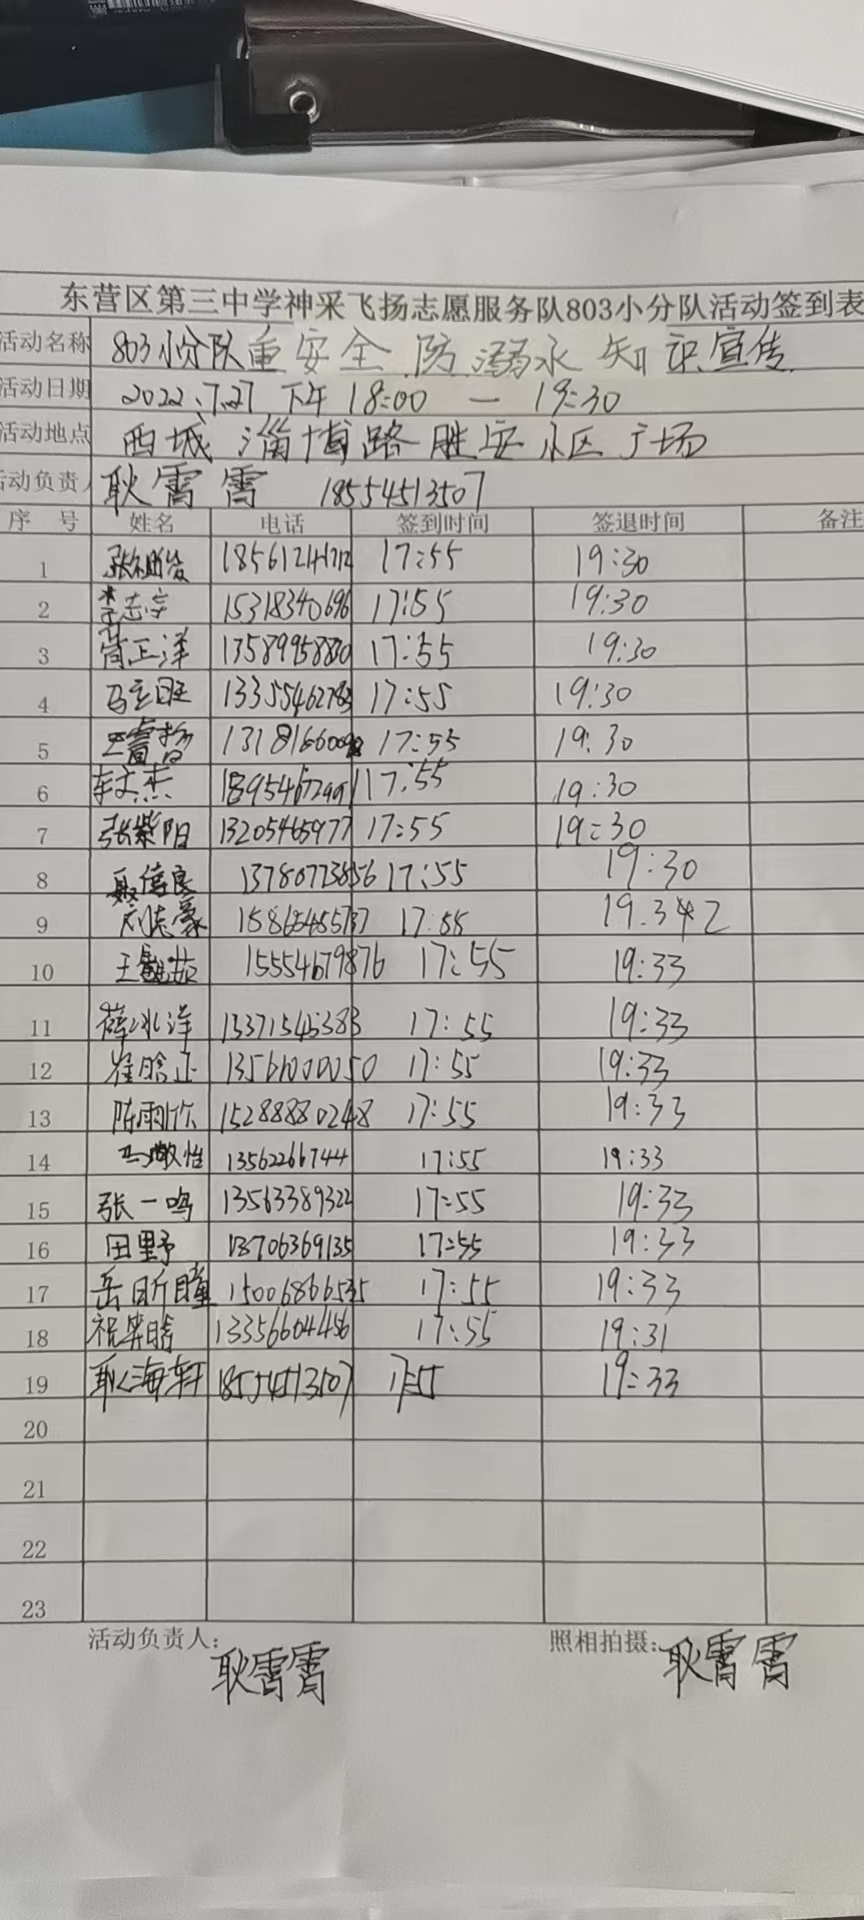 东营区第三中学神采飞扬志愿服务队803小分队活动签到表
活动名称 803小分队重安全 防溺水 知识宣传
活动日期 2022.7.27 下午 18:00 — 19:30
活动地点 西城 淄博路胜安小区广场
活动负责人 耿霄霄 18554513507
序号 姓名 电话 签到时间 签退时间 备注
1 17:55 19:30
2 李志宇 15318340696 17:55 19:30
3 正洋 17:55 19:30
4 17:55 19:30
5 17:55 19:30
6 17:55 19:30
7 张紫阳 13205465977 17:55 19:30
8 13780773856 17:55 19:30
9 刘志豪 17:55
10 王 15554679876 17:55 19:33
11 薛冰洋 15371545383 17:55 19:33
12 崔晗正 13561000050 17:55 19:33
13 陈雨欣 15288880248 17:55 19:33
14 13562266744 17:55 19:33
15 张一鸣 13563389322 17:55 19:33
16 田野 13706369135 17:55 19:33
17 岳昕瞳 15006866535 17:55 19:33
18 13356604456 17:55 19:31
19 耿海轩 18554513507 17:55 19:33
20
21
22
23
活动负责人: 耿霄霄 照相拍摄: 耿霄霄